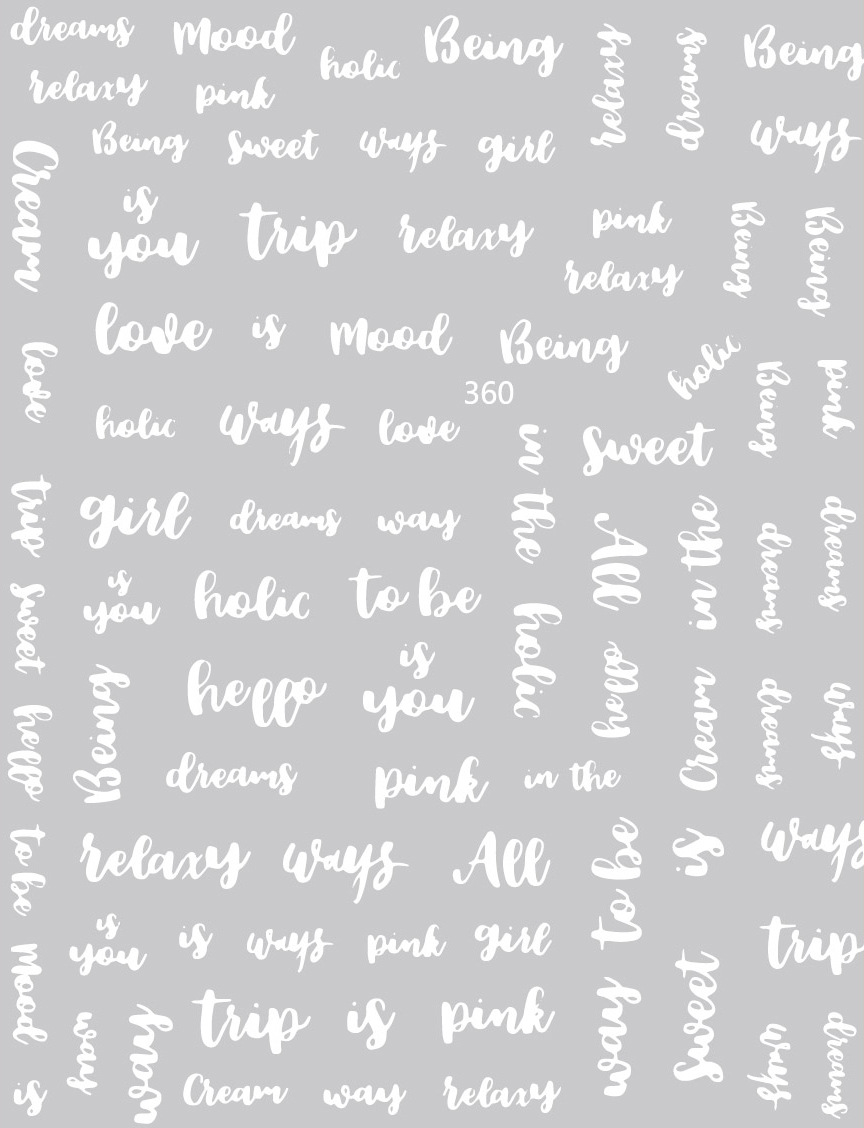 dreams Mood holic Being relaxy dreams Being
relaxy pink
Being sweet ways girl ways
Cream is you trip relaxy pink relaxy Being Being
love love is Mood Being holic Being pink
360
holic ways love in the sweet
trip girl dreams way All in the dreams dreams
sweet is you holic to be holic
hello Being hello is you hello Cream dreams ways
dreams pink in the
to be relaxy ways All to be is ways
is you is ways pink girl trip
Mood way way trip is pink way sweet ways dreams
is Cream way relaxy